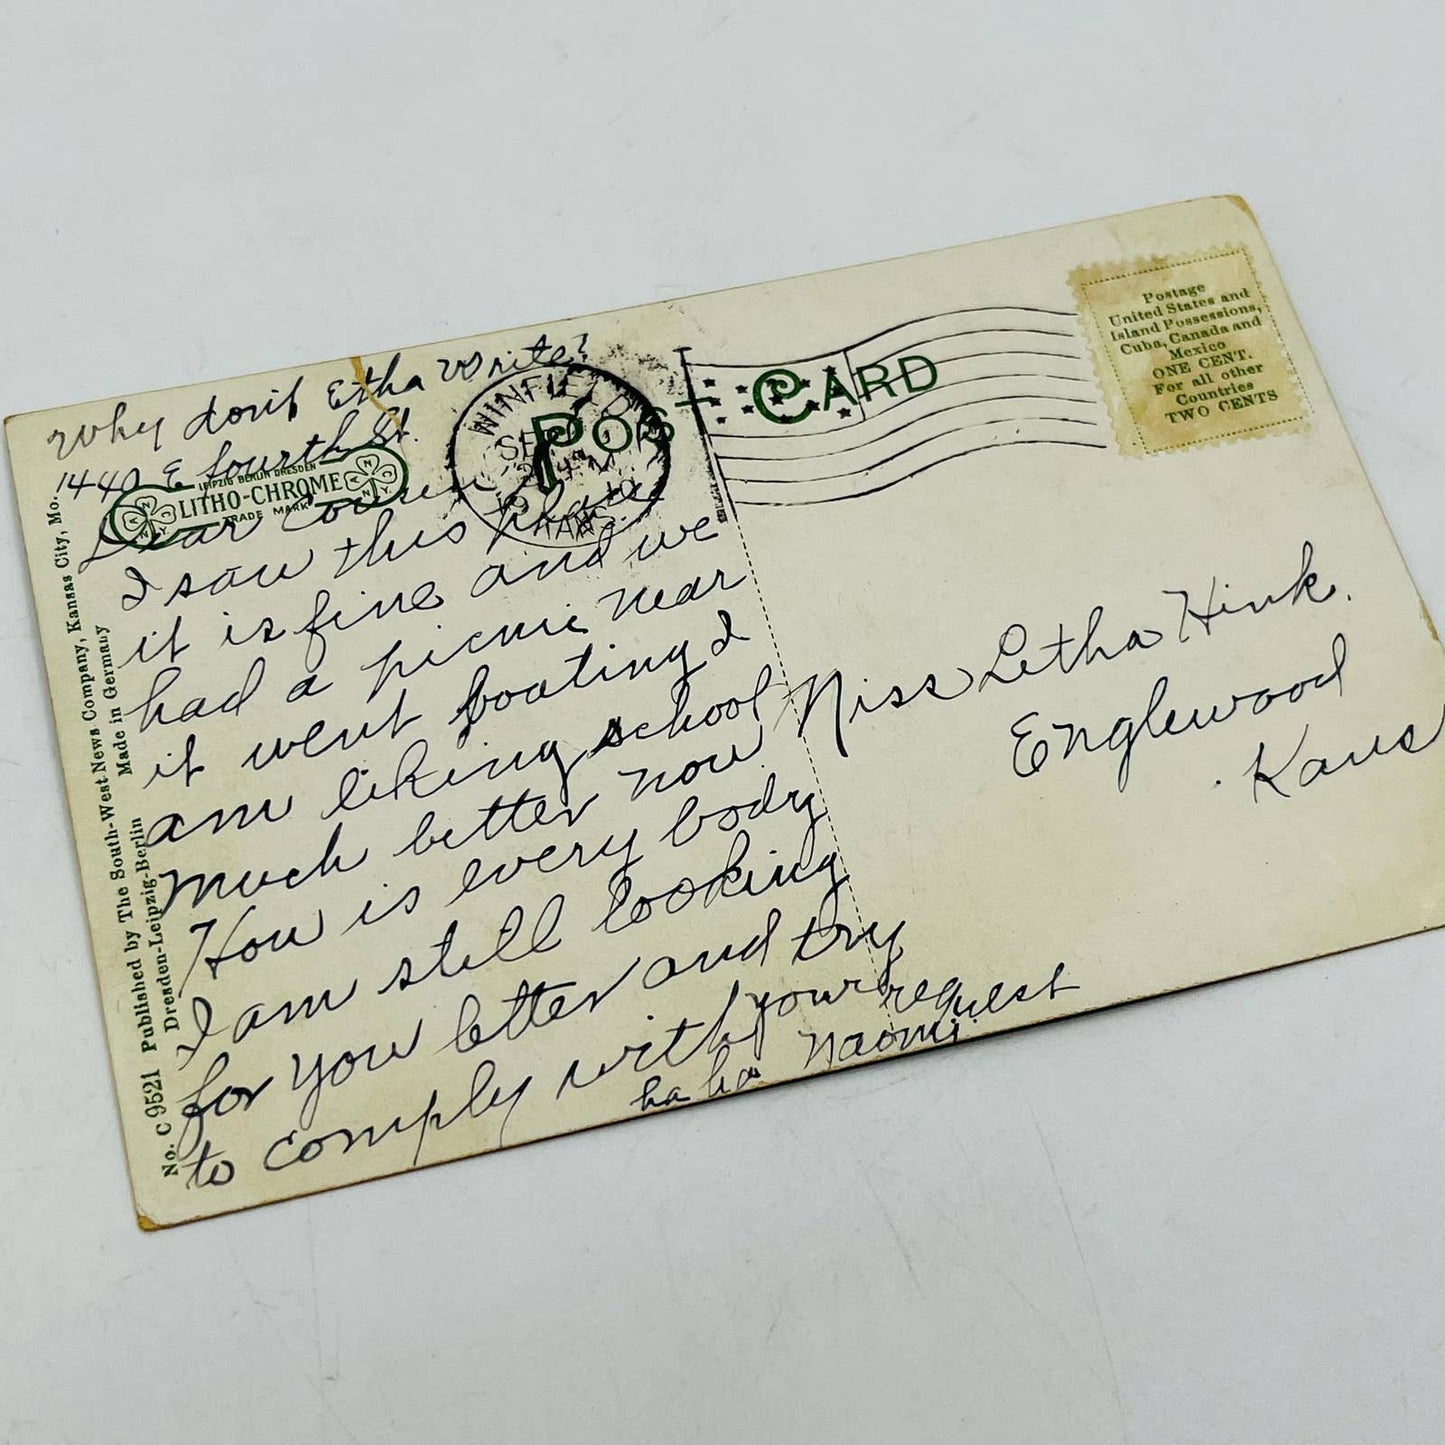 Why don't Etha write?
1440 E fourth St.
LEIPZIG BERLIN DRESDEN
LITHO-CHROME
TRADE MARK
Dear Cousin
I saw this place
it is fine and we
had a picnic near
it went boating I
am liking school
much better now
How is every body
I am still looking
for you letter and try
to comply with your request
ha ha Naomi.
No. C 9521 Published by The South-West News Company, Kansas City, Mo.
Dresden-Leipzig-Berlin Made in Germany
POST CARD
WINFIELD
SEP
KANS.
Postage
United States and
Island Possessions,
Cuba, Canada and
Mexico
ONE CENT.
For all other
Countries
TWO CENTS
Miss Letha Hink.
Englewood
Kans